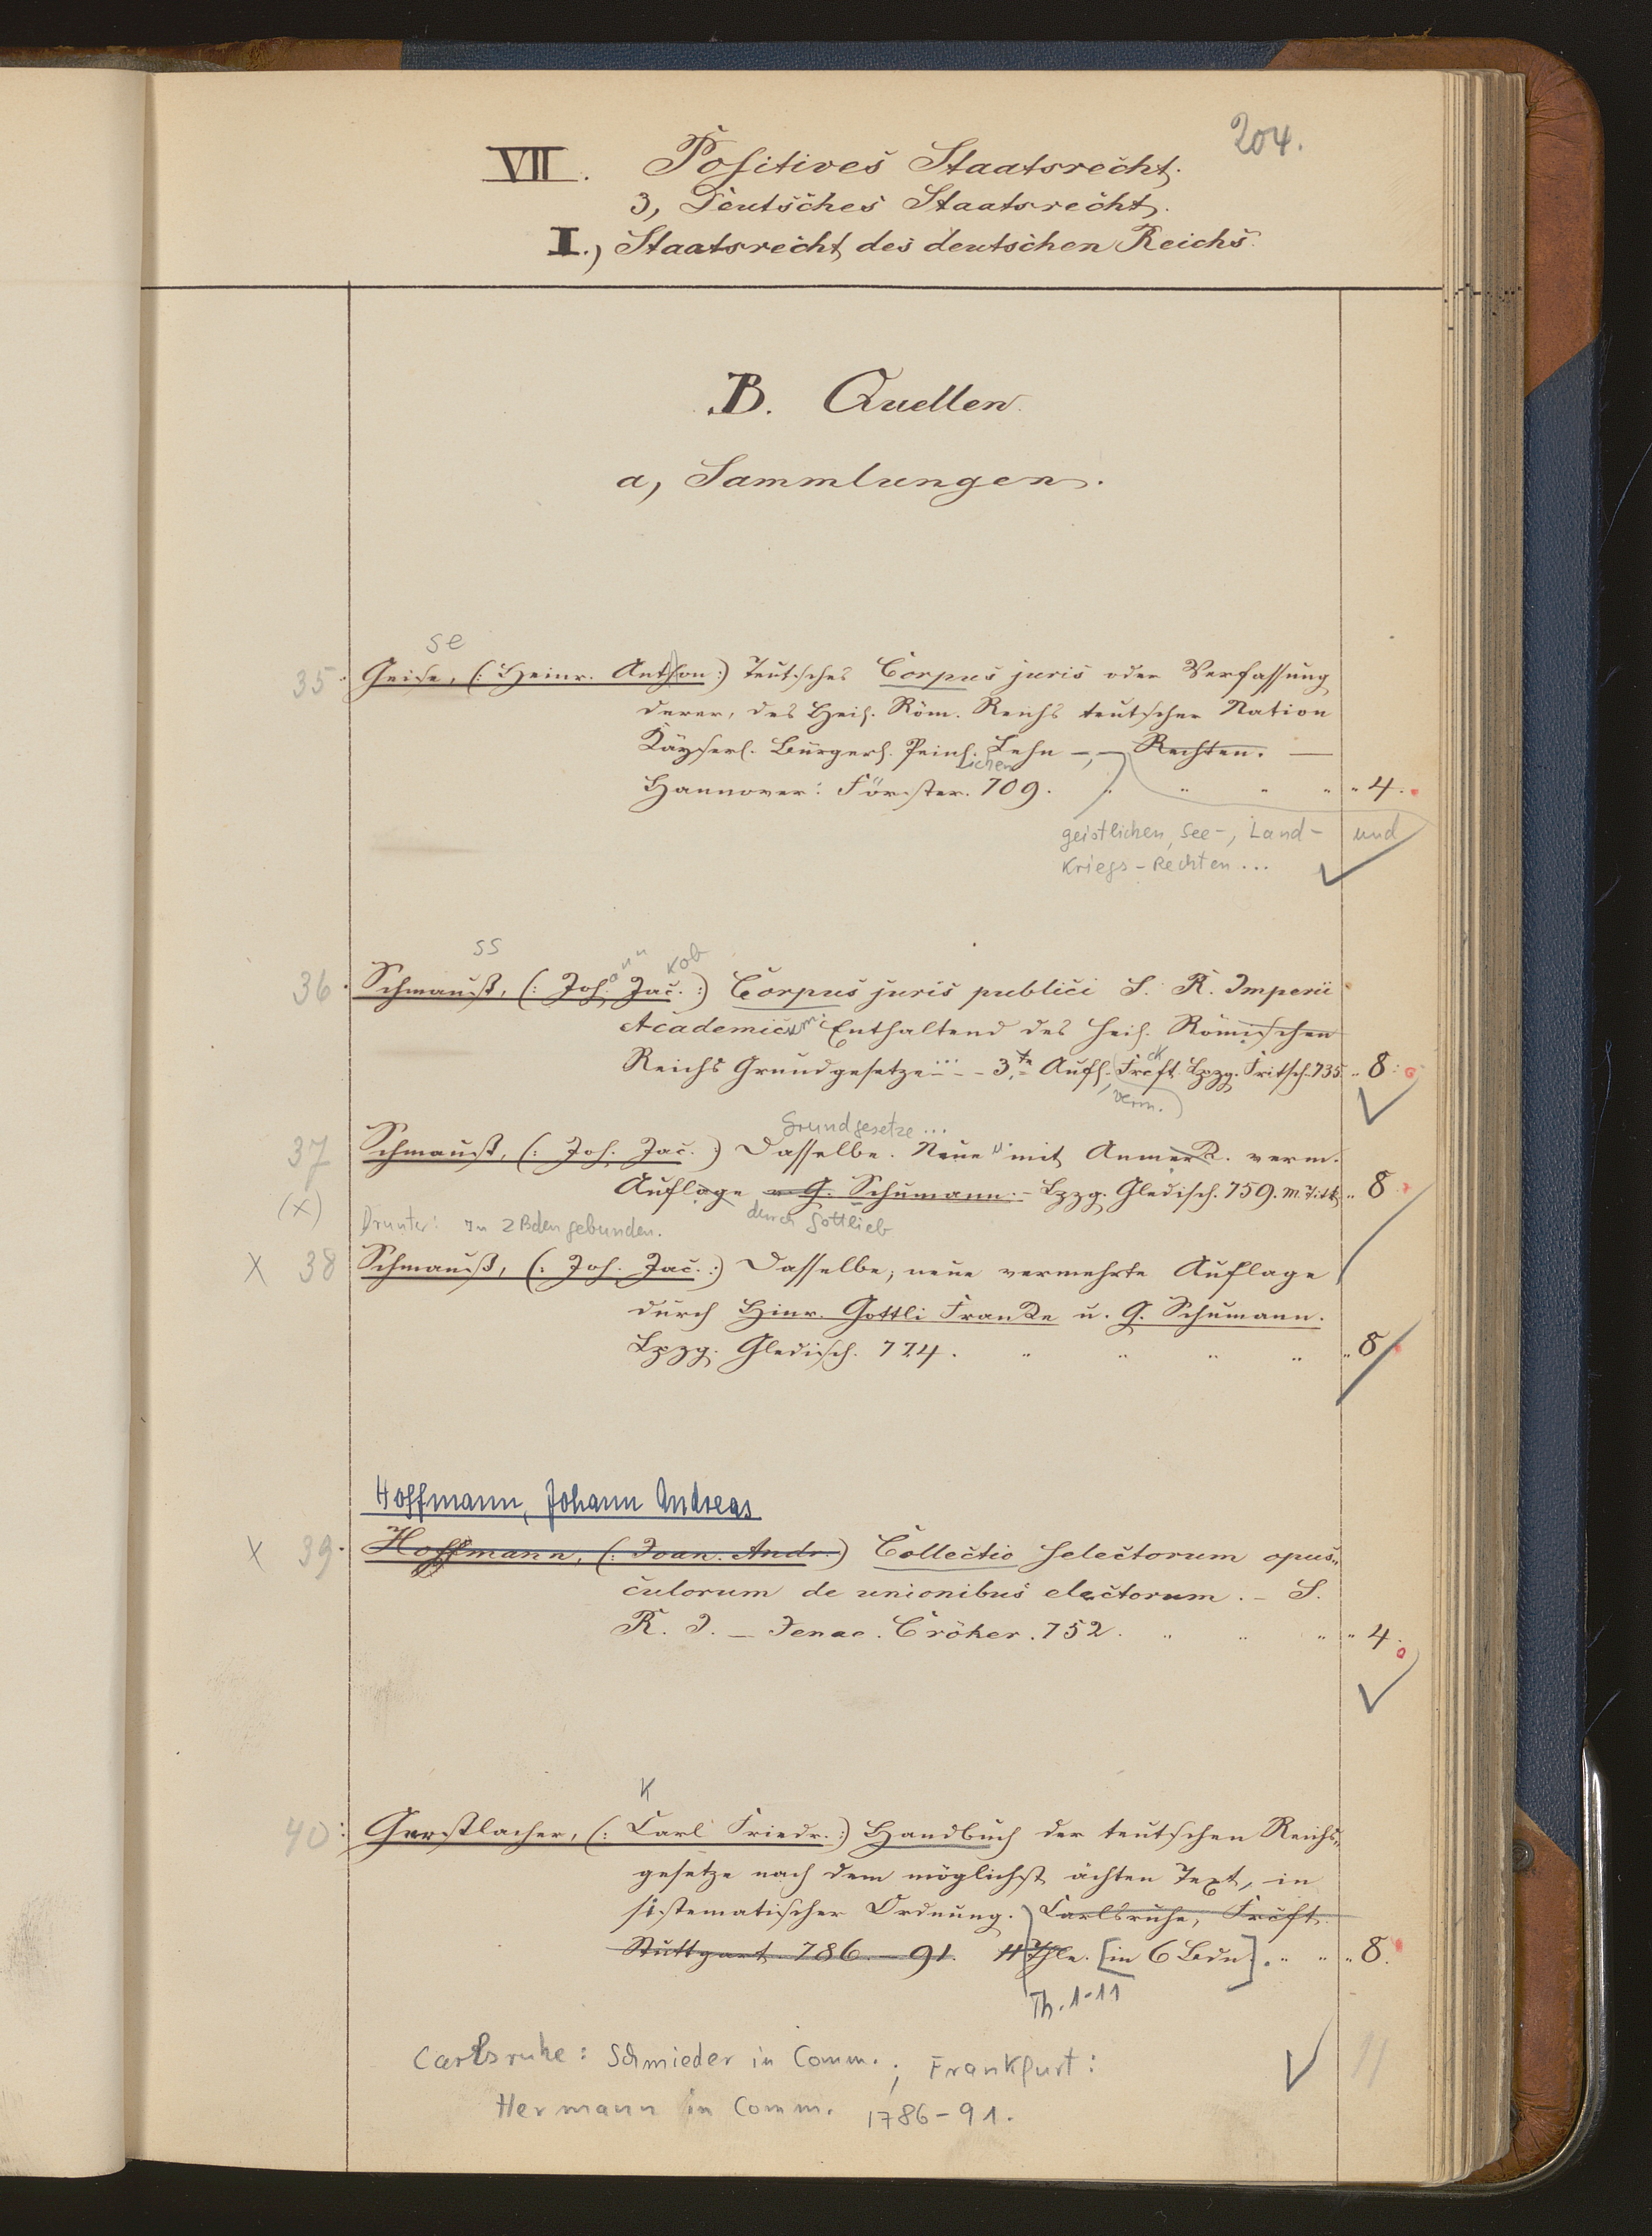 204.
VII. Positives Staatsrecht.
3, Deutsches Staatsrecht.
I.) Staatsrecht des deutschen Reichs.
B. Quellen.
a, Sammlungen.
se
35. Geise, (: Heinr. Anthon :) Teutsches Corpus juris oder Verfassung
derer, des Heil. Röm. Reichs teutscher Nation
Käyserl. Bürgerl. Peinl. Lehn -, - Rechten. —
lichen
Hannover: Förster. 709. " " " " " 4.
geistlichen, See-, Land- und
Kriegs-Rechten...
ss ann kob
36. Schmauß, (: Joh. Jac. :) Corpus juris publici S. R. Imperii
Academicum: Enthaltend des Heil. Römischen
ck
Reichs Grundgesetze... - 3.te Aufl. Frcft. Lpzg. Fritsch. 735. " 8.
verm.
Grundgesetze...
37 Schmauß, (: Joh. Jac. :) Dasselbe. Neue u. mit Anmerk. verm.
(x) Auflage v. G. Schumann. - Lpzg. Gledisch. 759. M. Titk. " 8
durch Gottlieb
Drunter: In 2 Bden gebunden.
x 38 Schmauß, (: Joh. Jac. :) Dasselbe, neue vermehrte Auflage
durch Hinr. Gottli Franke u. G. Schumann.
Lpzg. Gledisch. 774. " " " " " 8
Hoffmann, Johann Andreas
x 39. Hoffmann, (: Joan. Andr. :) Collectio selectorum opus„
culorum de unionibus electorum. - S.
R. I. — Jenae. Cröker. 752. " " " " 4.
K
40. Gerstlacher, (: Carl Friedr. :) Handbuch der teutschen Reichs„
gesetze nach dem möglichst ächten Text, in
sistematischer Ordnung. Carlsruhe, Frcft.
Stuttgart. 786. - 91. 11 Thle. [in 6 Bdn]. " " " 8.
Th. 1-11
Carlsruhe: Schmieder in Comm.; Frankfurt:
Hermann in Comm. 1786-91.
11